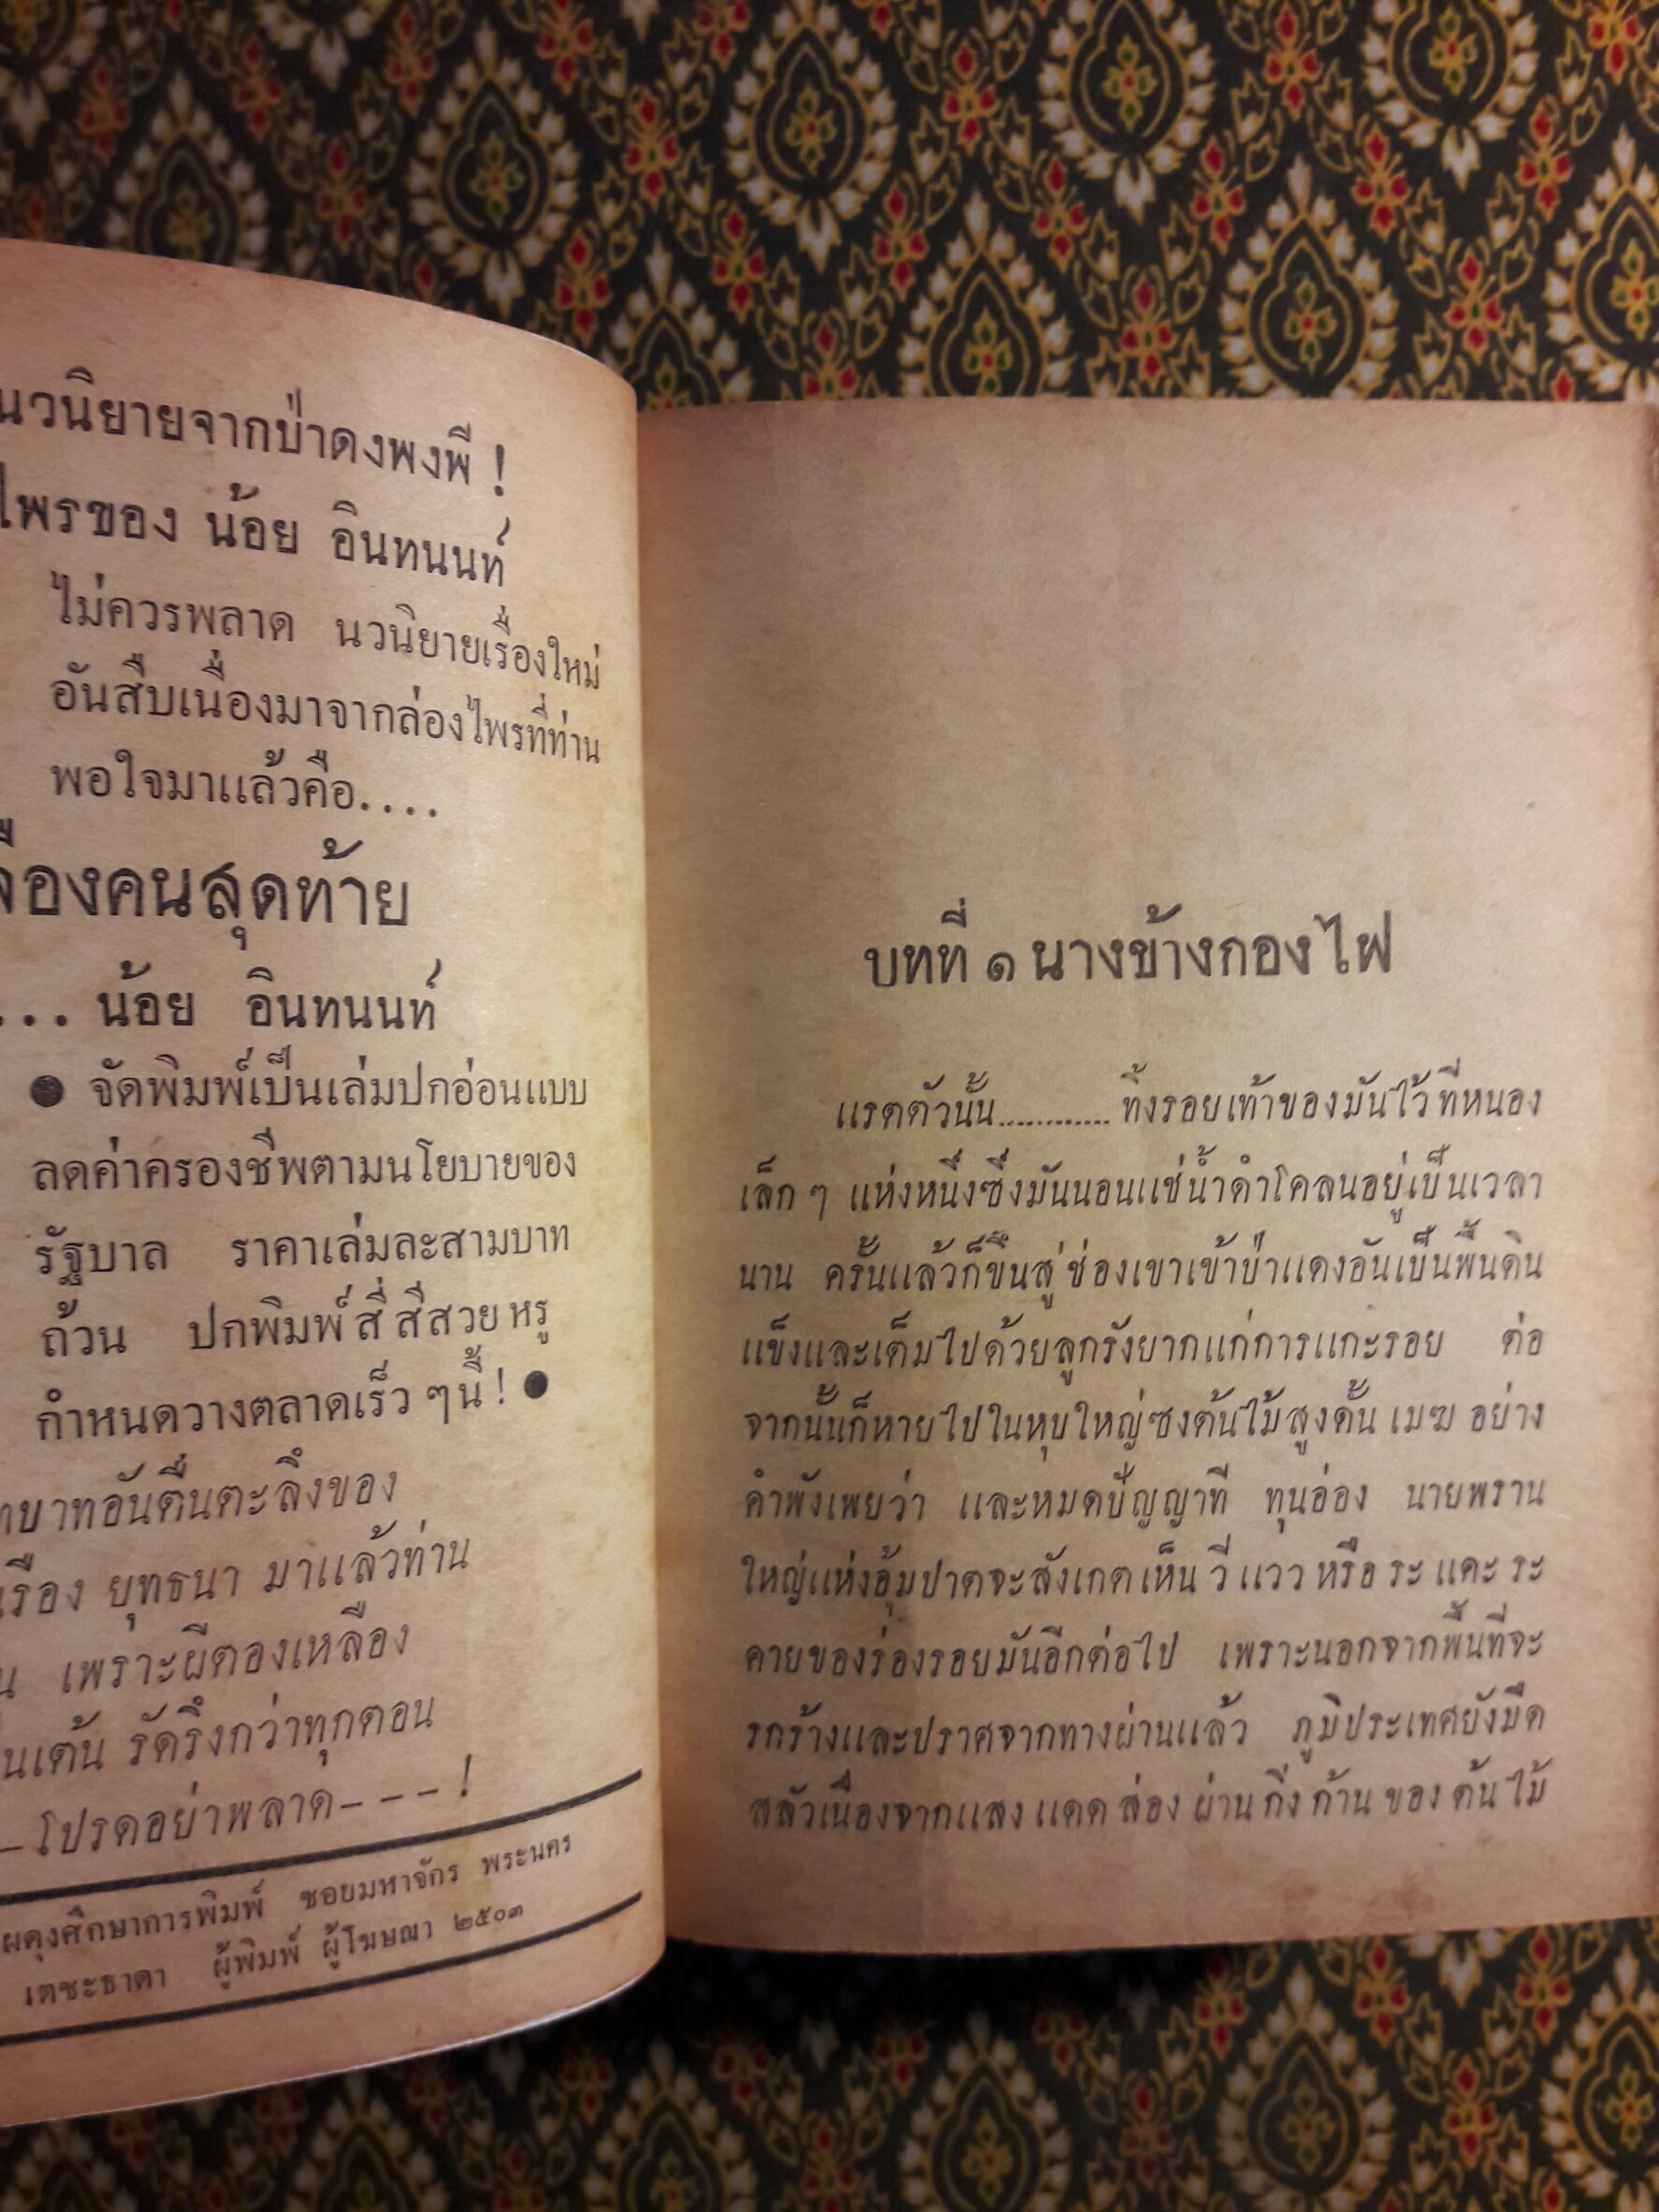 นวนิยายจากป่าดงพงพี !
ไพรของ น้อย อินทนนท์
ไม่ควรพลาด นวนิยายเรื่องใหม่
อันสืบเนื่องมาจากล่องไพรที่ท่าน
พอใจมาแล้วคือ....
คนสุดท้าย
... น้อย อินทนนท์
● จัดพิมพ์เป็นเล่มปกอ่อนแบบ
ลดค่าครองชีพตามนโยบายของ
รัฐบาล ราคาเล่มละสามบาท
ถ้วน ปกพิมพ์สี่สีสวยหรู
กำหนดวางตลาดเร็วๆนี้ ! ●
บาทอันตื่นตะลึงของ
เรือง ยุทธนา มาแล้วท่าน
เพราะผีตองเหลือง
เต้น รัดรึงกว่าทุกตอน
—โปรดอย่าพลาด– – – !
ผดุงศึกษาการพิมพ์ ซอยมหาจักร พระนคร
เตชะธาดา ผู้พิมพ์ ผู้โฆษณา ๒๕๐๓
บทที่ ๑ นางข้างกองไฟ
แรดตัวนั้น............ ทิ้งรอยเท้าของมันไว้ที่หนอง
เล็กๆ แห่งหนึ่งซึ่งมันนอนแช่น้ำดำโคลนอยู่เป็นเวลา
นาน ครั้นแล้วก็ขึ้นสู่ช่องเขาเข้าป่าแดงอันเป็นพื้นดิน
แข็งและเต็มไปด้วยลูกรังยากแก่การแกะรอย ต่อ
จากนั้นก็หายไปในหุบใหญ่ซึ่งต้นไม้สูงดั้น เมฆ อย่าง
คำพังเพยว่า และหมดปัญญาที่ ทุนอ่อง นายพราน
ใหญ่แห่งอุ้มปาดจะสังเกตเห็น วี่ แวว หรือ ระ แคะ ระ
คายของร่องรอยมันอีกต่อไป เพราะนอกจากพื้นที่จะ
รกร้างและปราศจากทางผ่านแล้ว ภูมิประเทศยังมืด
สลัวเนื่องจากแสง แดด ส่อง ผ่าน กิ่ง ก้าน ของ ต้นไม้